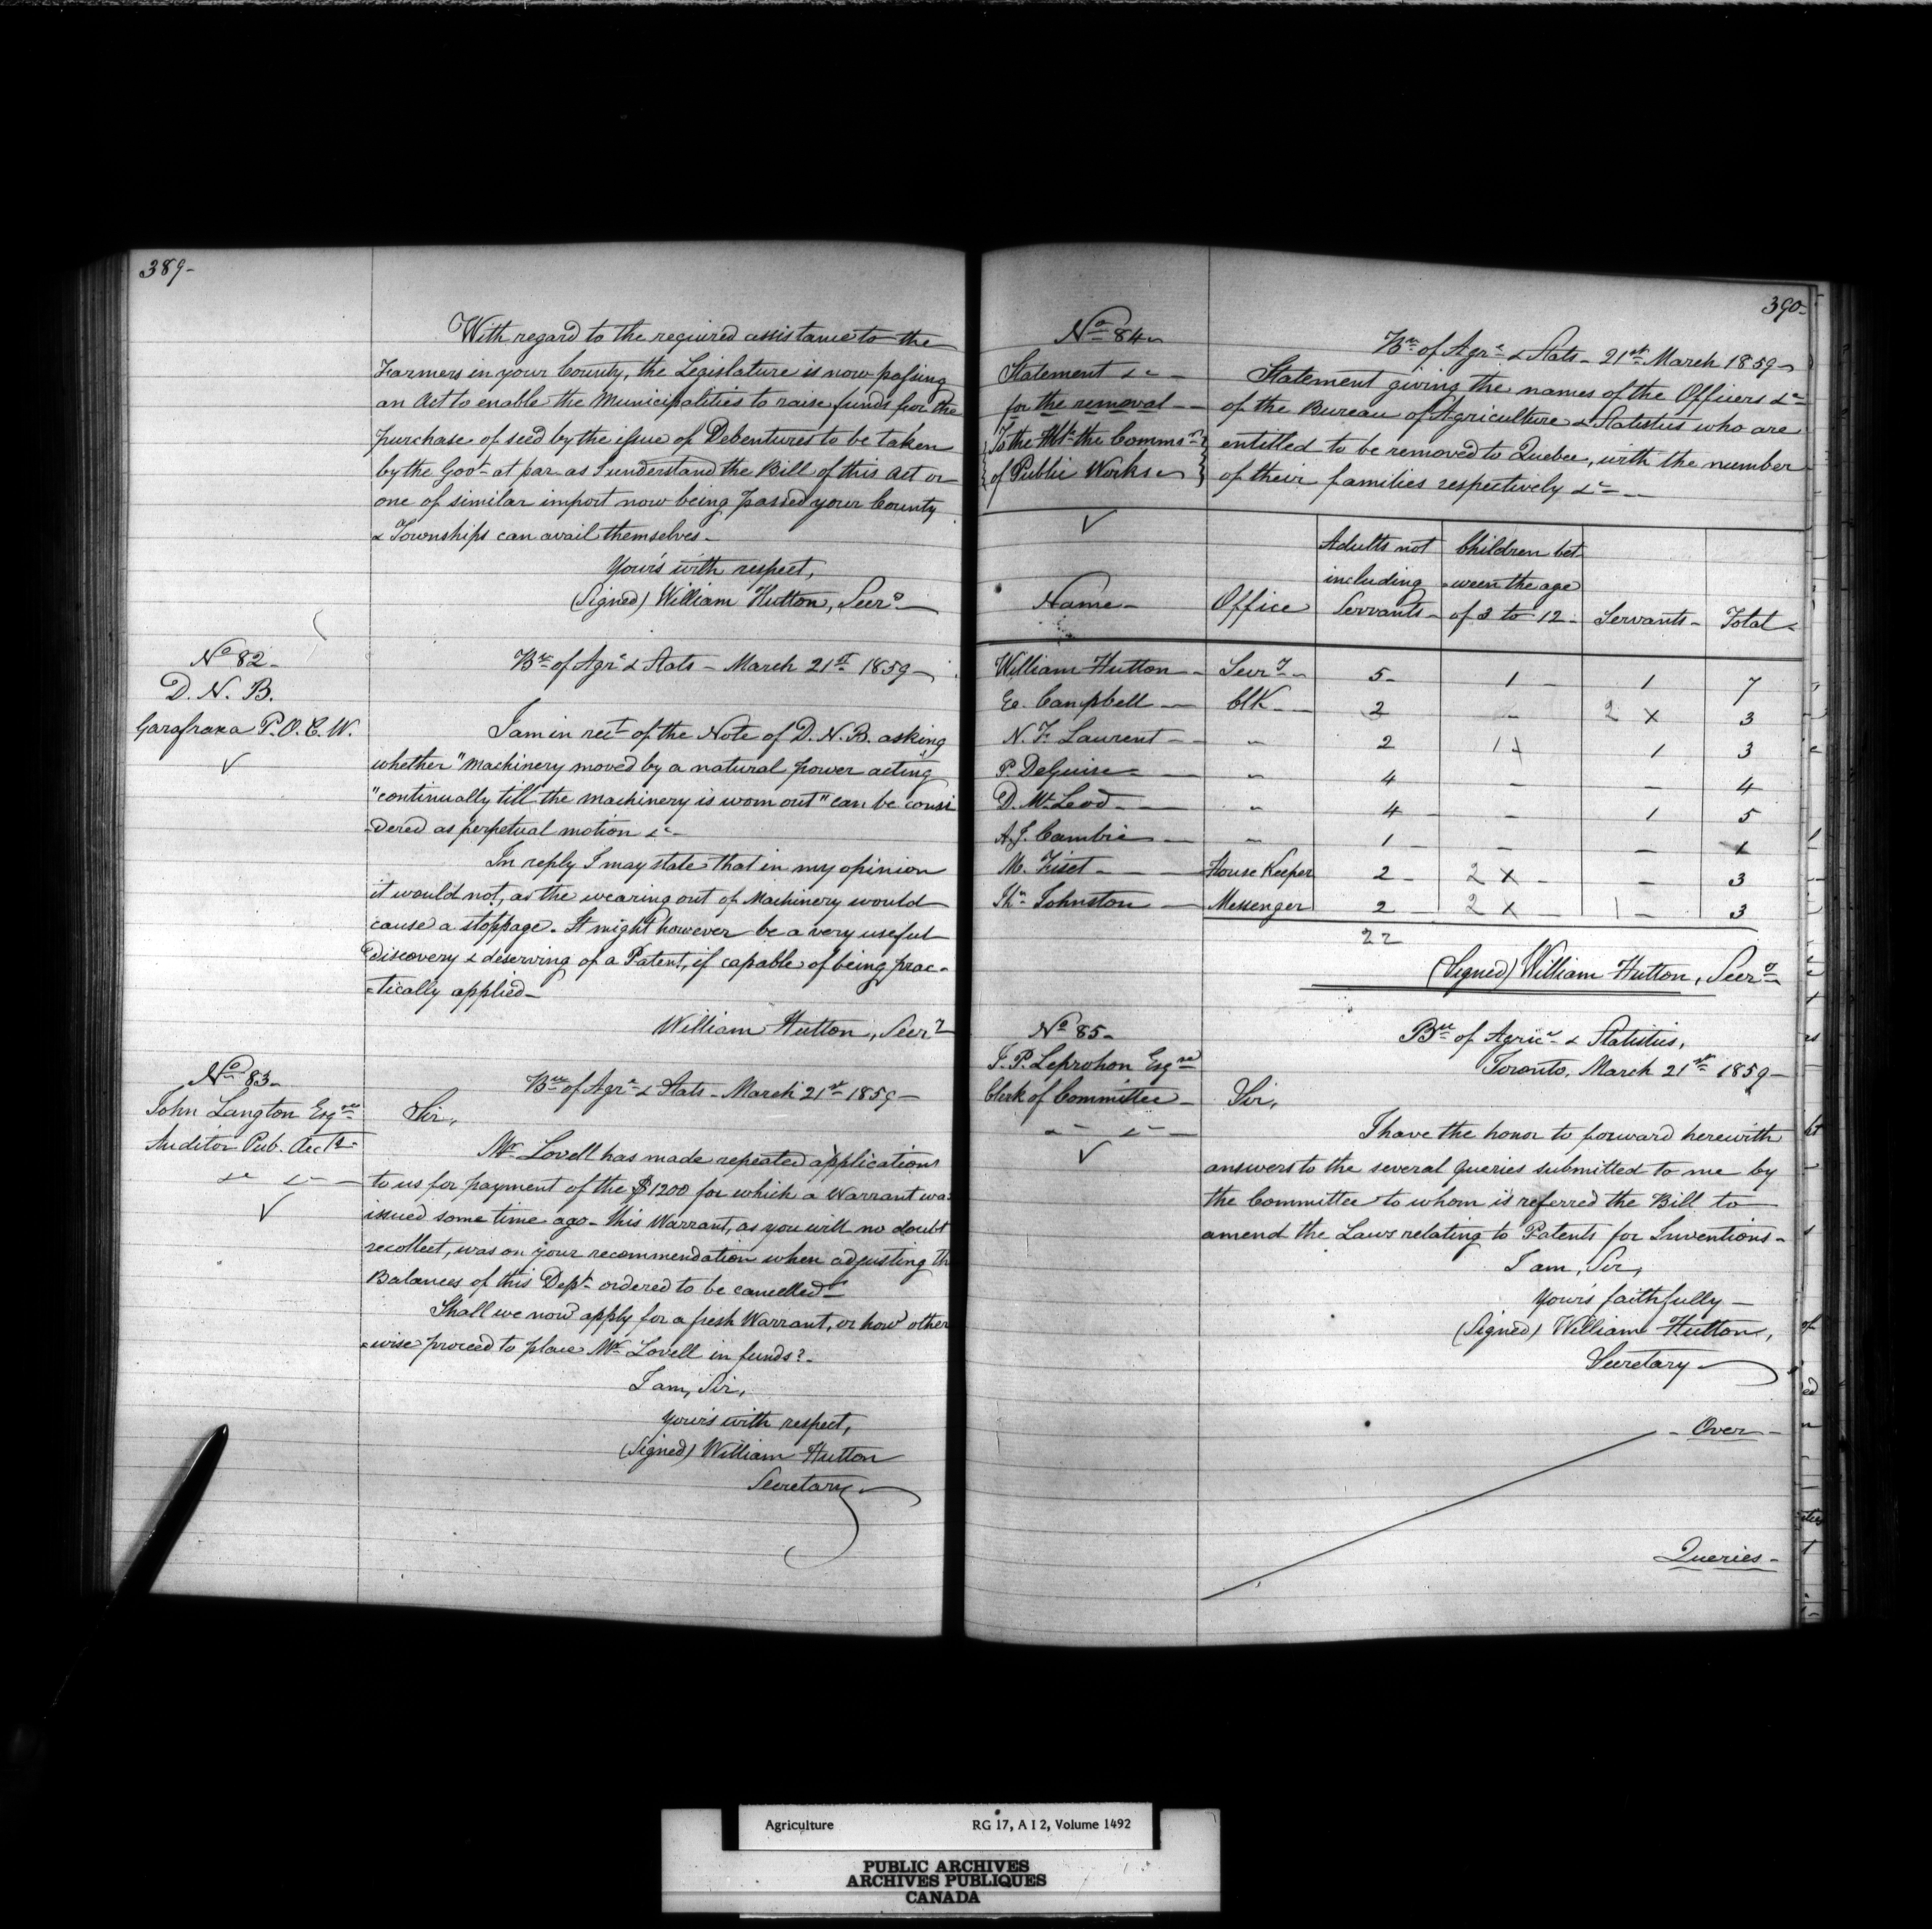 389-
With regard to the required assistance to the
Farmers in your County, the Legislature is now passing
an Act to enable the Municipalities to raise funds for the
purchase of seed by the issue of Debentures to be taken
by the Govt at par as I understand the Bill of this Act or
one of similar import now being passed your County
& Townships can avail themselves-
Your's with respect,
(Signed) William Hutton, Secry
No 82-
D. N. B.
Garafraxa P.O. C.W.
Bu of Agre & Stats - March 21st 1859-
I am in rect of the Note of D. N. B. asking
whether "machinery moved by a natural power acting
"continually till the machinery is worn out" can be consi
-dered as perpetual motion &c-
In reply I may state that in my opinion
it would not, as the wearing out of Machinery would
cause a stoppage. It might however be a very useful
discovery & deserving of a Patent, if capable of being prac-
-tically applied-
William Hutton, Secry
No 83-
John Langton Esqre
Auditor Pub. Accts
&c &c
Bu of Agre & Stats - March 21st 1859-
Sir,
Mr Lovell has made repeated applications
to us for payment of the $1200 for which a Warrant was
issued some time ago - this Warrant, as you will no doubt
recollect, was on your recommendation when adjusting the
Balances of this Dept ordered to be cancelled-
Shall we now apply for a fresh Warrant, or how other
-wise proceed to place Mr Lovell in funds?-
I am, Sir,
Your's with respect,
(Signed) William Hutton
Secretary
390-
No 84-
Statement &c -
for the removal -
To the Asst the Commsr
of Public Works-
Bu of Agre & Stats - 21st March 1859-
Statement giving the names of the Officers &c
of the Bureau of Agriculture & Statistics who are
entitled to be removed to Quebec, with the number
of their families respectively &c-
Name- Office Adults not including Servants- Children bet ween the age of 3 to 12- Servants- Total-
William Hutton - Secry - 5- 1 - 1 7
E. Campbell - Clk - 2 - 2 x 3
N. F. Laurent - " 2 1 x 1 3
P. DeGuise - " 4 - - 4
D. McLeod - " 4 - 1 5
A. J. Cambie - " 1 - - 1
M. Fiset - House Keeper 2 - 2 x - - 3
Thos Johnston - Messenger 2 - 2 x - 1 - 3
22
(Signed) William Hutton, Secry
No 85-
J. P. Leprohon Esqre
Clerk of Committee-
&c &c -
Bu of Agric & Statistics,
Toronto, March 21st 1859-
Sir,
I have the honor to forward herewith
answers to the several queries submitted to me by
the Committee to whom is referred the Bill to
amend the Laws relating to Patents for Inventions-
I am, Sir,
Your's faithfully -
(Signed) William Hutton,
Secretary
- Over -
Queries-
Agriculture RG 17, A I 2, Volume 1492
PUBLIC ARCHIVES
ARCHIVES PUBLIQUES
CANADA